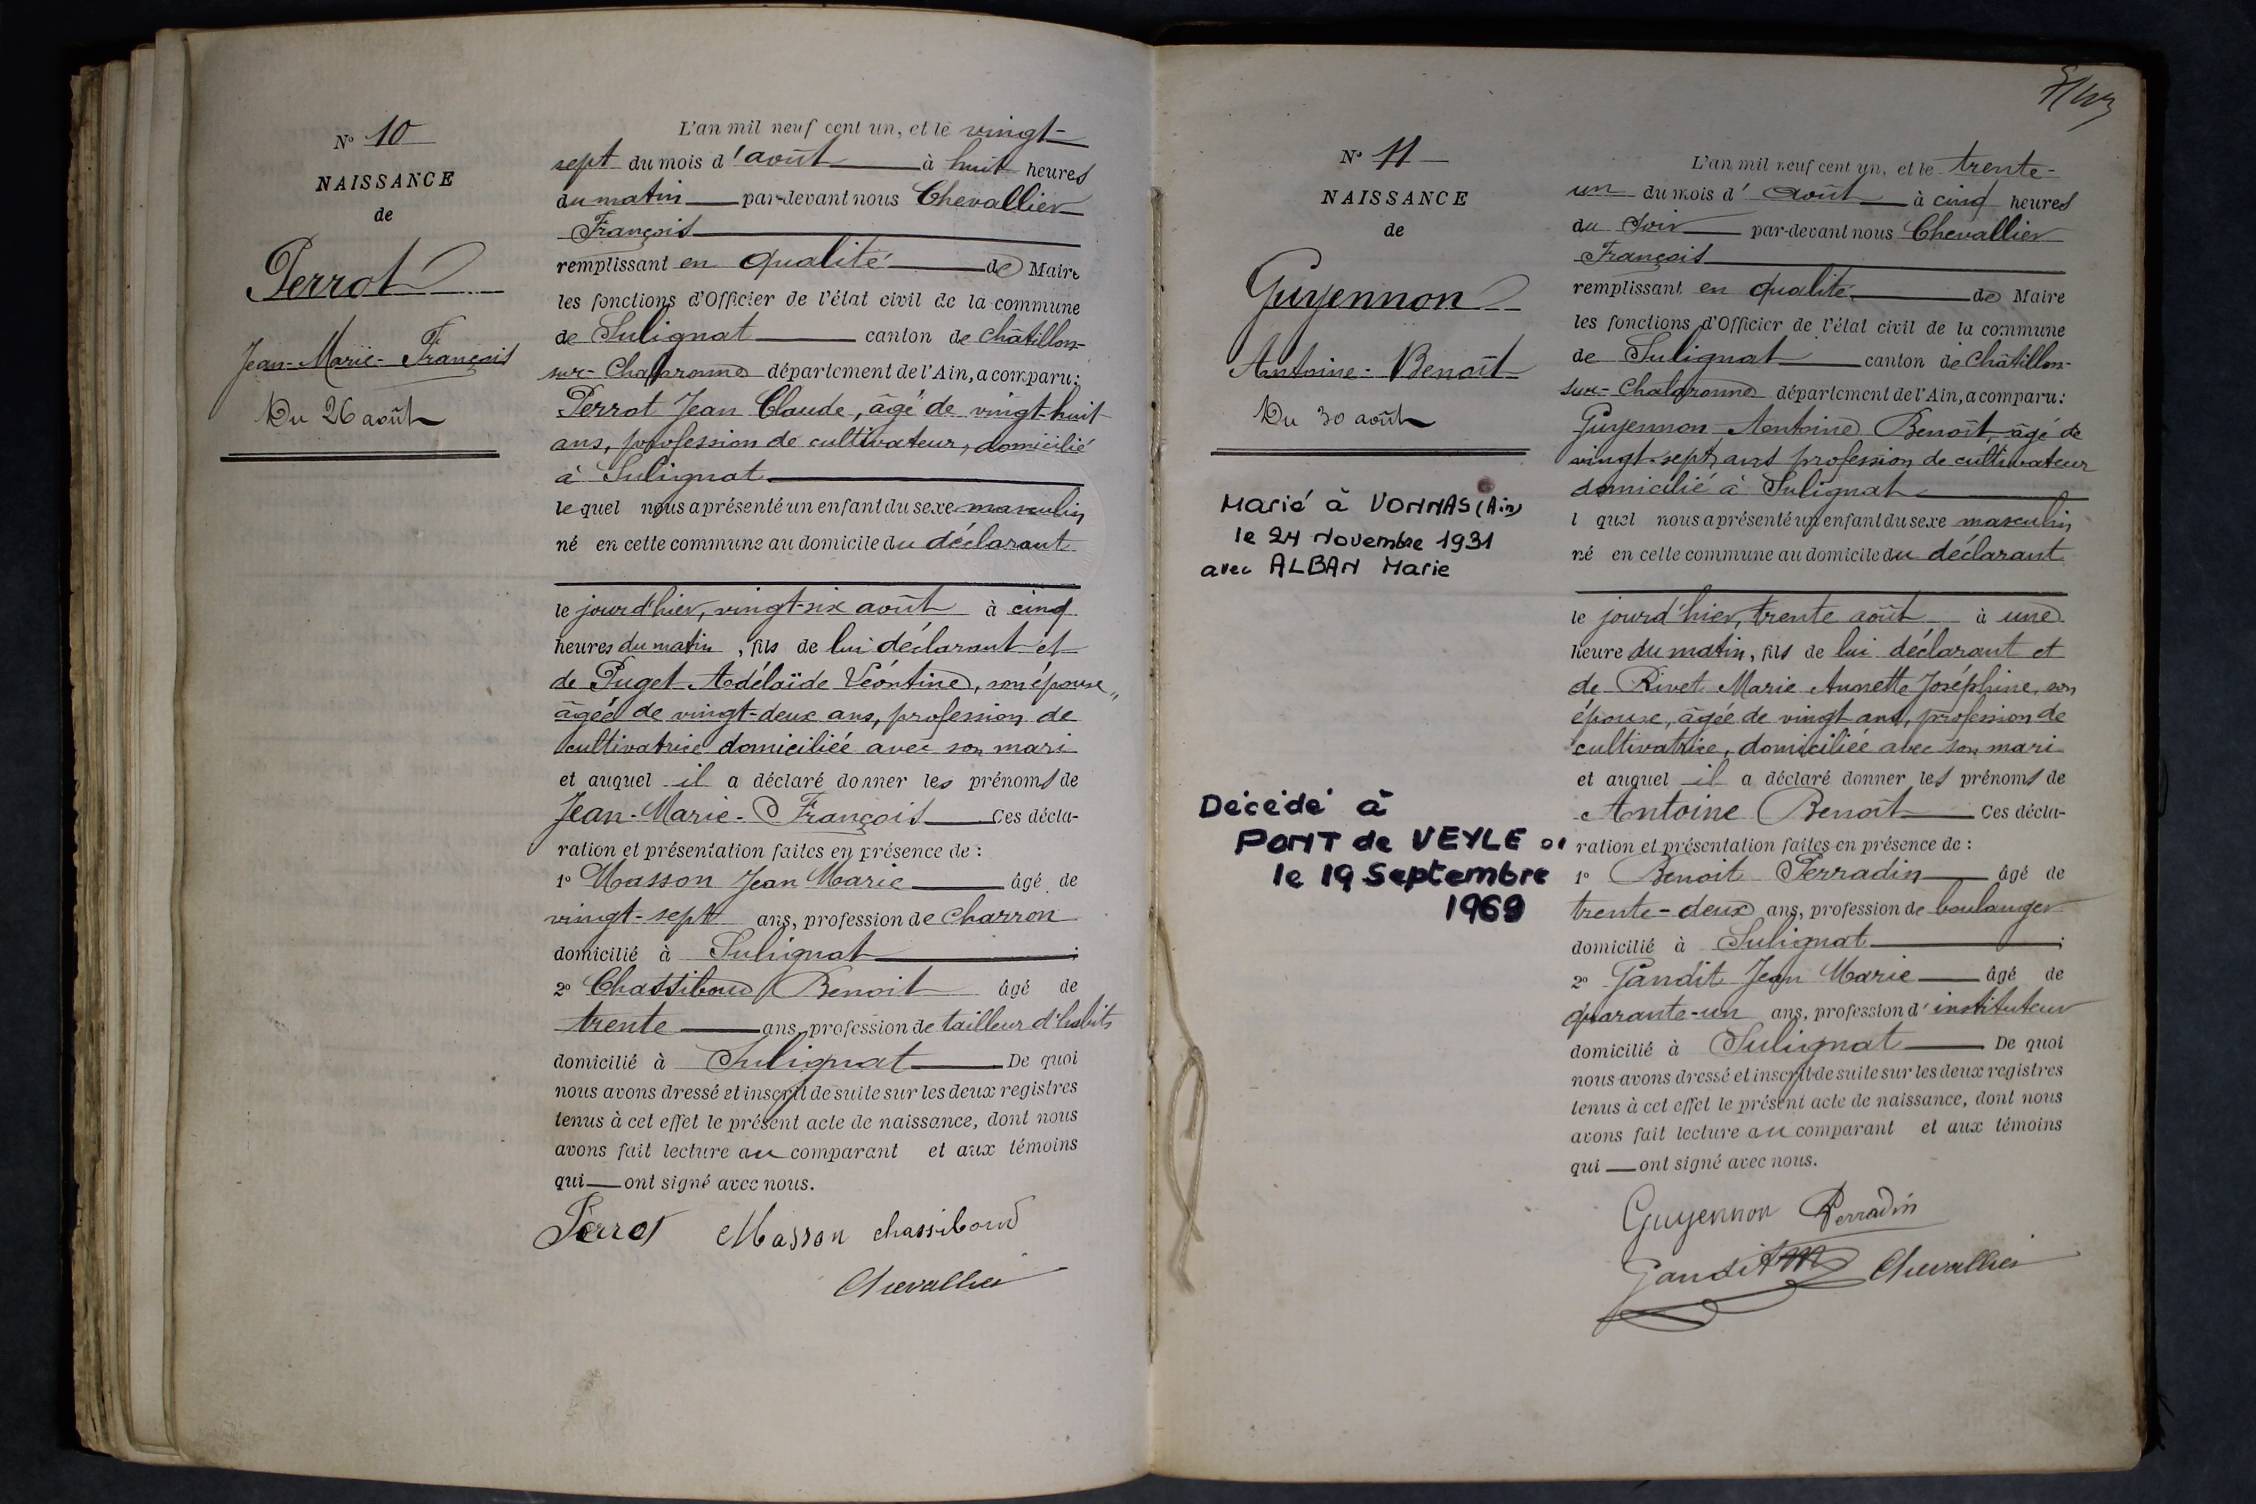 N° 10
NAISSANCE
de
Perrot
Jean-Marie-François
Du 26 août
L'an mil neuf cent un, et le vingt-
sept du mois d'août à huit heures
du matin par-devant nous Chevallier
François
remplissant en qualité de Maire
les fonctions d'Officier de l'état civil de la commune
de Sulignat canton de Châtillon-
sur-Chalaronne département de l'Ain, a comparu:
Perrot Jean Claude, âgé de vingt-huit
ans, profession de cultivateur, domicilié
à Sulignat
lequel nous a présenté un enfant du sexe masculin
né en cette commune au domicile du déclarant
le jour d'hier, vingt-six août à cinq
heures du matin, fils de lui déclarant et
de Puget Adélaïde Léontine, son épouse,
âgée de vingt-deux ans, profession de
cultivatrice domiciliée avec son mari
et auquel il a déclaré donner les prénoms de
Jean-Marie-François Ces décla-
ration et présentation faites en présence de :
1° Masson Jean Marie âgé de
vingt-sept ans, profession de charron
domicilié à Sulignat ;
2° Chassiboud Benoit âgé de
trente ans, profession de tailleur d'habits
domicilié à Sulignat De quoi
nous avons dressé et inscrit de suite sur les deux registres
tenus à cet effet le présent acte de naissance, dont nous
avons fait lecture au comparant et aux témoins
qui ont signé avec nous.
Perrot Masson chassiboud
Chevallier
N° 11
NAISSANCE
de
Guyennon
Antoine-Benoît
Du 30 août
Marié à VONNAS (Ain)
le 24 Novembre 1931
avec ALBAN Marie
Décédé à
PONT de VEYLE 01
le 19 Septembre
1969
L'an mil neuf cent un, et le trente-
un du mois d'août à cinq heures
du soir par-devant nous Chevallier
François
remplissant en qualité de Maire
les fonctions d'Officier de l'état civil de la commune
de Sulignat canton de Châtillon-
sur-Chalaronne département de l'Ain, a comparu:
Guyennon Antoine Benoît, âgé de
vingt-sept ans profession de cultivateur
domicilié à Sulignat
l quel nous a présenté un enfant du sexe masculin
né en cette commune au domicile du déclarant
le jour d'hier, trente août à une
heure du matin, fils de lui déclarant et
de Rivet Marie Annette Joséphine, son
épouse, âgée de vingt ans, profession de
cultivatrice, domiciliée avec son mari
et auquel il a déclaré donner les prénoms de
Antoine Benoît Ces décla-
ration et présentation faites en présence de :
1° Benoit Perradin âgé de
trente-deux ans, profession de boulanger
domicilié à Sulignat ;
2° Gandit Jean Marie âgé de
quarante-un ans, profession d'instituteur
domicilié à Sulignat De quoi
nous avons dressé et inscrit de suite sur les deux registres
tenus à cet effet le présent acte de naissance, dont nous
avons fait lecture au comparant et aux témoins
qui ont signé avec nous.
Guyennon Perradin
Gandit JM Chevallier